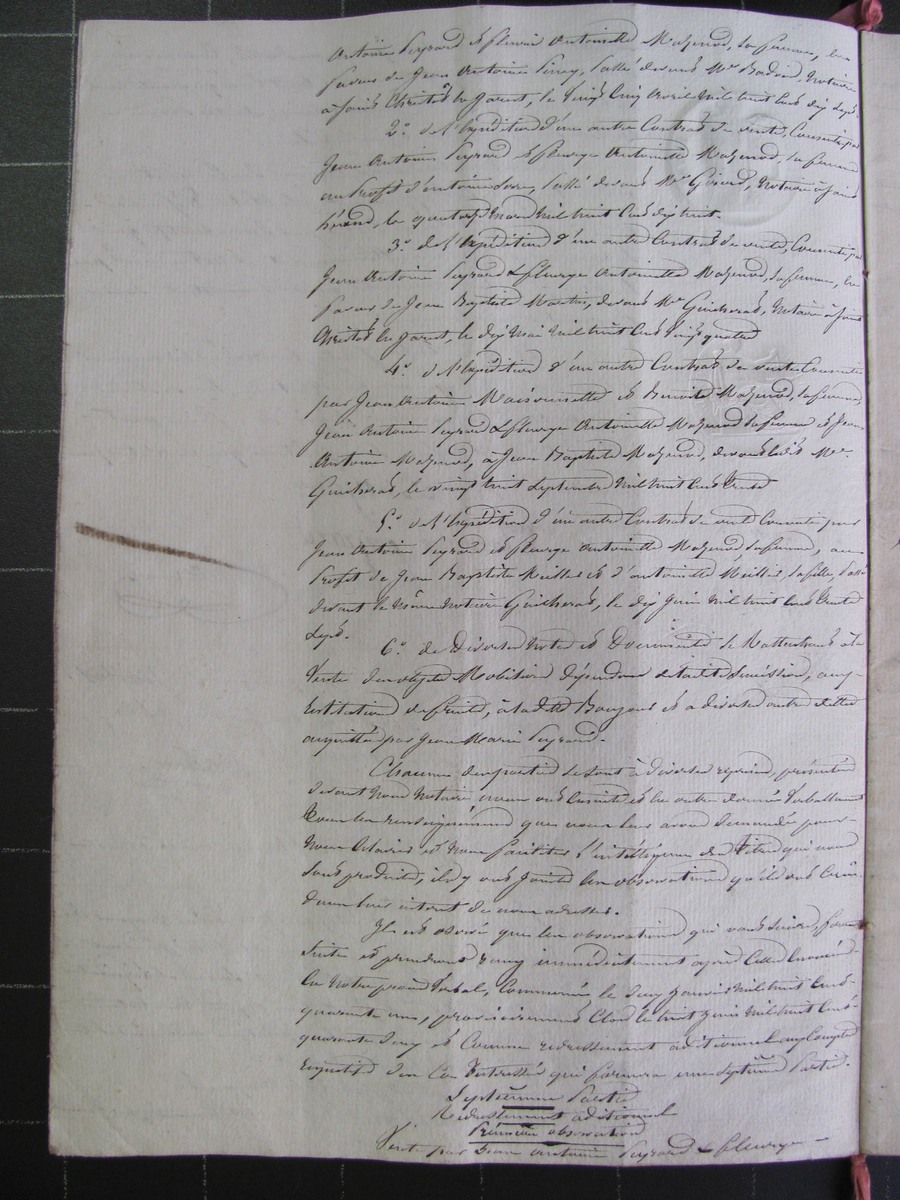 Antoine Peyrard et fleurie Antoinette Mazenod, sa femme, en
faveur de Jean Antoine Piney, passé devant Me Badard, Notaire
à Saint Christôt en Jarest, le vingt cinq avril mil huit cent dix sept.
2.º de l'Expédition d'un autre Contrat de vente, Consentie par
Jean Antoine Peyrard et fleurye Antoinette Mazenod, sa femme
au Profit d'antoine, passé devant Me Girard, Notaire à Saint
héand, le quatorze Mars Mil huit Cent dix huit.
3.º de l'Expédition d'un autre Contrat de vente, Consentie par
Jean Antoine Peyrard & fleurye Antoinette Mazenod, sa femme, en
faveur de Jean Baptiste Martin, devant Me Guicherat, Notaire à Saint
Christôt en Jarest, le dix Mai Mil huit Cent vingt quatre
4.º de l'Expédition d'un autre Contrat de vente Consentie
par Jean Antoine Maisonnette et Benoite Mazenod, sa femme,
Jean Antoine Peyrard & fleurye Antoinette Mazenod sa femme et Jean
Antoine Mazenod, à Jean Baptiste Mazenod, devant ledit Me
Guicherat, le vingt huit Septembre Mil huit Cent trente
5.º de l'Expédition d'un autre Contrat de vente Consentie par
Jean Antoine Peyrard et fleurye Antoinette Mazenod, sa femme, au
Profit de Jean Baptiste Meiller et d'antoinette Meiller, sa fille, passé
devant le même Notaire Guicherat, le dix Juin Mil huit Cent trente
sept.
6.º de Diverses Notes et Documents se Rattachant à la
Vente des objets Mobiliers dépendant de ladite succession, aux
Restitutions de fruits, à la dette Boujour et à diverses autres dettes
acquittées par Jean Marie Peyrard.
Chacune des parties se sont à diverses reprises, présentées
devant Nous Notaire nous ont ensuite et les autres donnés Verballement
tous les renseignements que nous leur avons demandés pour
Nous éclairer et nous faciliter l'intelligence des Titres qui nous
sont produits, ils y ont joint les observations qu'ils ont Cru
dans leur intérêt de nous adresser.
Il est observé que les observations qui vont suivre, feront
suite et prendront rang immédiatement après Celles Consignées
en Notre procès Verbal, Commencé, le deux Janvier Mil huit Cent
quarante un, provisoirement Clos le huit Juin Mil huit Cent
quarante deux et Comme redressement additionnel aux Comptes
respectifs des Co Intéressés qui formera une septième Partie.
Septième Partie
Redressement additionnel
Première observation
Vente par Jean Antoine Peyrard & fleurye